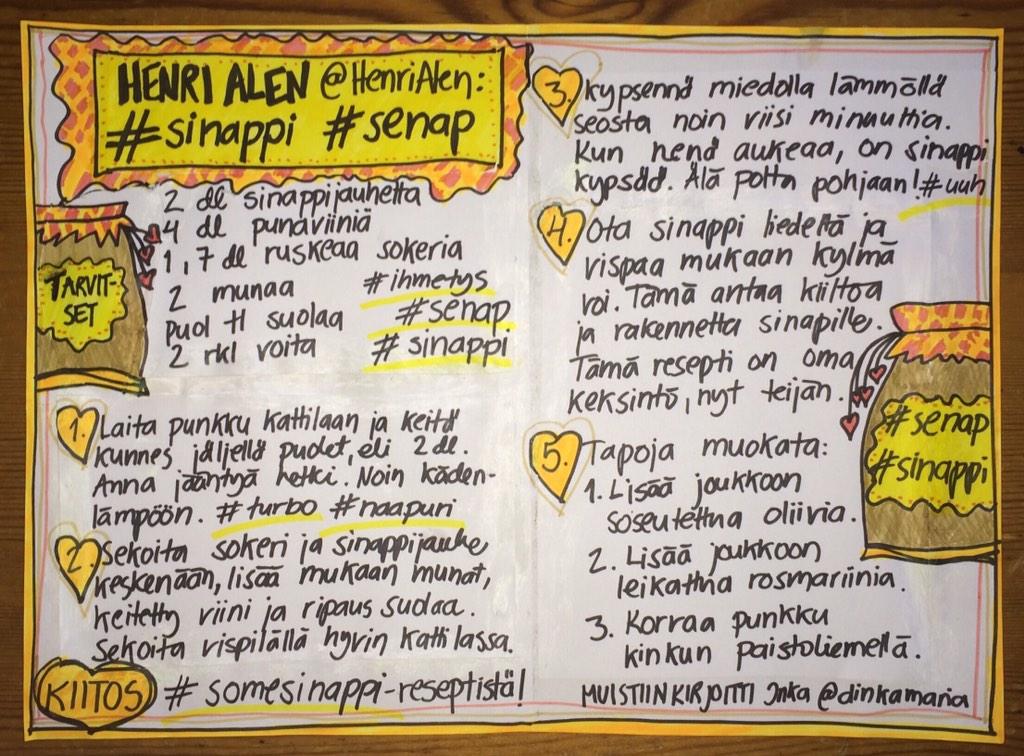 HENRI ALEN @HenriAlen:
#sinappi #senap
2 dl sinappijauhetta
4 dl punaviiniä
1,7 dl ruskeaa sokeria
2 munaa #ihmetys
puol tl suolaa #senap
2 rkl voita #sinappi
TARVIT-
SET
1. Laita punkku kattilaan ja keitä
kunnes jäljellä puolet, eli 2 dl.
Anna jäähtyä hetki. Noin käden-
lämpöön. #turbo #naapuri
2. Sekoita sokeri ja sinappijauhe
keskenään, lisää mukaan munat,
keitetty viini ja ripaus suolaa.
Sekoita vispilällä hyvin kattilassa.
KIITOS #somesinappi-reseptistä!
3. Kypsennä miedolla lämmöllä
seosta noin viisi minuuttia.
Kun henä aukeaa, on sinappi
kypsää. Älä polta pohjaan! #uuh
4. Ota sinappi liedeltä ja
vispaa mukaan kylmä
voi. Tämä antaa kiiltoa
ja rakennetta sinapille.
Tämä resepti on oma
keksintö, nyt teijän.
#senap
#sinappi
5. Tapoja muokata:
1. Lisää joukkoon
soseutettua oliivia.
2. Lisää joukkoon
leikattua rosmariinia.
3. Korraa punkku
kinkun paistoliemellä.
MUISTIINKIRJOITTI Inka @dinkamaria